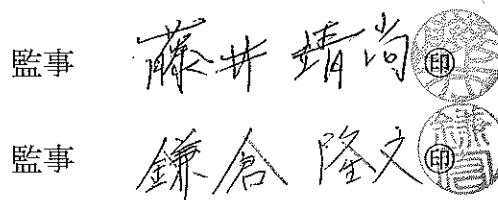 監事 藤井 靖尚 ㊞
監事 鎌倉 隆文 ㊞